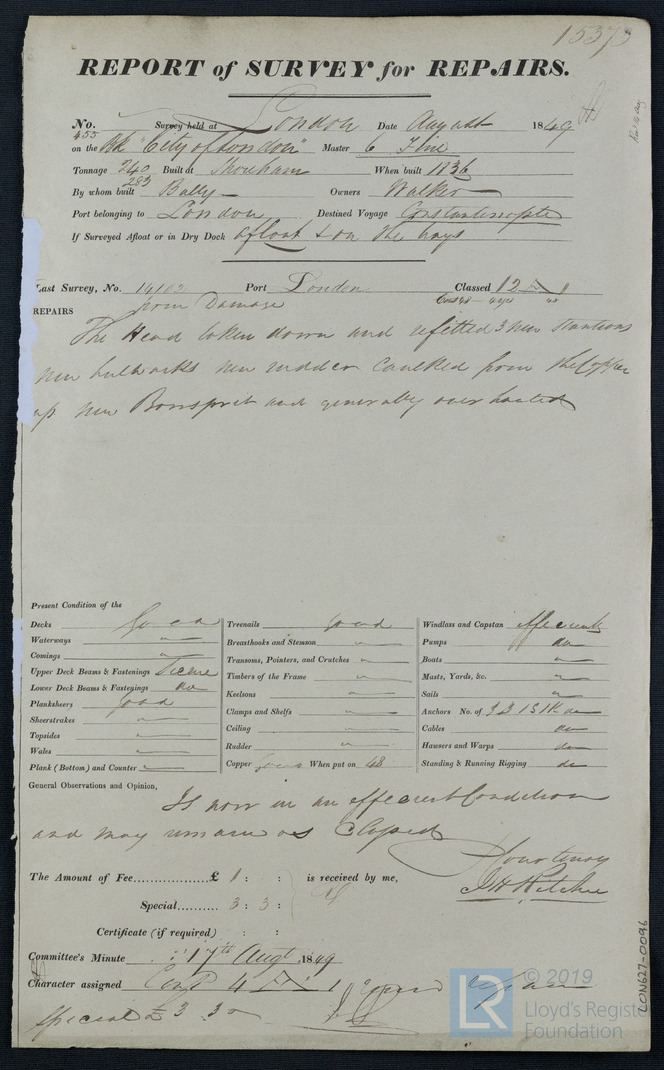 15373
REPORT of SURVEY for REPAIRS.
No. 455 Survey held at London Date August 1849
on the Bk "City of London" Master G Fline
Tonnage 240 283 Built at Shoreham When built 1836
By whom built Bally Owners Walker
Port belonging to London Destined Voyage Constantinople
If Surveyed Afloat or in Dry Dock afloat & on the ways
Last Survey, No. 14102 Port London Classed 12 A 1
REPAIRS from Damage
The Head taken down and refitted 3 new stantions
new bulwarks new rudder caulked from the Copper
up new Bowsprit and generally over hauled
Present Condition of the
Decks Good
Waterways "
Comings "
Upper Deck Beams & Fastenings Secure
Lower Deck Beams & Fastenings do
Planksheers good
Sheerstrakes "
Topsides "
Wales "
Plank (Bottom) and Counter "
Treenails good
Breasthooks and Stemson "
Transoms, Pointers, and Crutches "
Timbers of the Frame "
Keelsons "
Clamps and Shelfs "
Ceiling "
Rudder "
Copper Good When put on 48
Windlass and Capstan efficient
Pumps do
Boats "
Masts, Yards, &c. "
Sails "
Anchors No. of 3 B 1 S 1 K do
Cables do
Hawsers and Warps do
Standing & Running Rigging do
General Observations and Opinion,
Is now in an efficient Condition
and may remain as Classed
J H Ritchie
The Amount of Fee £ 1 : : is received by me,
Special 3 : 3 :
Certificate (if required) : :
Committee's Minute 17th Augt 1849
Character assigned Cont A 1
special £ 3 3
LON627-0096
LR © 2019
Lloyd's Register
Foundation